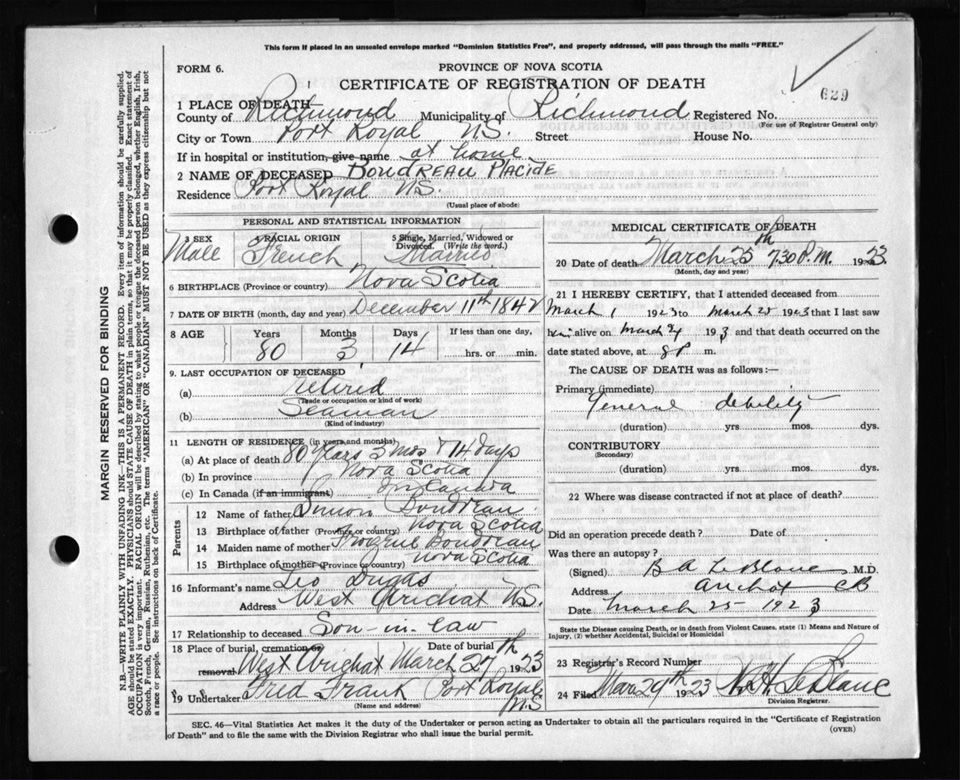 This form if placed in an unsealed envelope marked "Dominion Statistics Free", and properly addressed, will pass through the mails "FREE."
FORM 6.
PROVINCE OF NOVA SCOTIA
CERTIFICATE OF REGISTRATION OF DEATH
629
1 PLACE OF DEATH
County of Richmond Municipality of Richmond Registered No.
(For use of Registrar General only)
City or Town Port Royal N.S. Street House No.
If in hospital or institution, give name at home
2 NAME OF DECEASED Boudreau Placide
Residence Port Royal N.S.
(Usual place of abode)
PERSONAL AND STATISTICAL INFORMATION
3 SEX Male
4 RACIAL ORIGIN French
5 Single, Married, Widowed or Divorced. (Write the word.) Married
6 BIRTHPLACE (Province or country) Nova Scotia
7 DATE OF BIRTH (month, day and year) December 11th 1842
8 AGE Years Months Days If less than one day,
80 3 14 hrs. or min.
9. LAST OCCUPATION OF DECEASED
(a) retired
(Trade or occupation or kind of work)
(b) Seaman
(Kind of industry)
11 LENGTH OF RESIDENCE (in years and months)
(a) At place of death 80 years 3 mos & 14 days
(b) In province Nova Scotia
(c) In Canada (if an immigrant) in Canada
Parents
12 Name of father Simon Boudreau
13 Birthplace of father (Province or country) Nova Scotia
14 Maiden name of mother Boudreau
15 Birthplace of mother (Province or country) Nova Scotia
16 Informant's name Leo Dugas
Address West Arichat N.S.
17 Relationship to deceased Son-in-law
18 Place of burial, cremation or Date of burial
removal West Arichat March 27th 1923
19 Undertaker Fred Frank Port Royal N.S
(Name and address)
MEDICAL CERTIFICATE OF DEATH
20 Date of death March 25th 7.30 P.M. 1923
(Month, day and year)
21 I HEREBY CERTIFY, that I attended deceased from
March 1 1923 to March 25 1923 that I last saw
him alive on March 24 1923 and that death occurred on
date stated above, at 8 P m.
The CAUSE OF DEATH was as follows:—
Primary (immediate)
General debility
(duration) yrs. mos. dys.
CONTRIBUTORY
(Secondary)
(duration) yrs. mos. dys.
22 Where was disease contracted if not at place of death?
Did an operation precede death? Date of
Was there an autopsy?
(Signed) B A LeBlanc M.D.
Address Arichat CB
Date March 25 1923
State the Disease causing Death, or in death from Violent Causes, state (1) Means and Nature of
Injury, (2) whether Accidental, Suicidal or Homicidal
23 Registrar's Record Number
24 Filed Mar 29th 1923 LeBlanc
Division Registrar.
SEC. 46—Vital Statistics Act makes it the duty of the Undertaker or person acting as Undertaker to obtain all the particulars required in the "Certificate of Registration
of Death" and to file the same with the Division Registrar who shall issue the burial permit.
(OVER)
MARGIN RESERVED FOR BINDING
N.B.—WRITE PLAINLY WITH UNFADING INK—THIS IS A PERMANENT RECORD. Every item of information should be carefully supplied.
AGE should be stated EXACTLY. PHYSICIANS should STATE CAUSE OF DEATH in plain terms, so that it may be properly classified. Exact statement of
OCCUPATION is very important. RACIAL ORIGIN will be described by stating to what people or tongue the deceased person belonged, whether English, Irish,
Scotch, French, German, Russian, Ruthenian, etc. The terms "AMERICAN" or "CANADIAN" MUST NOT BE USED as they express citizenship but not
a race or people. See instructions on back of Certificate.